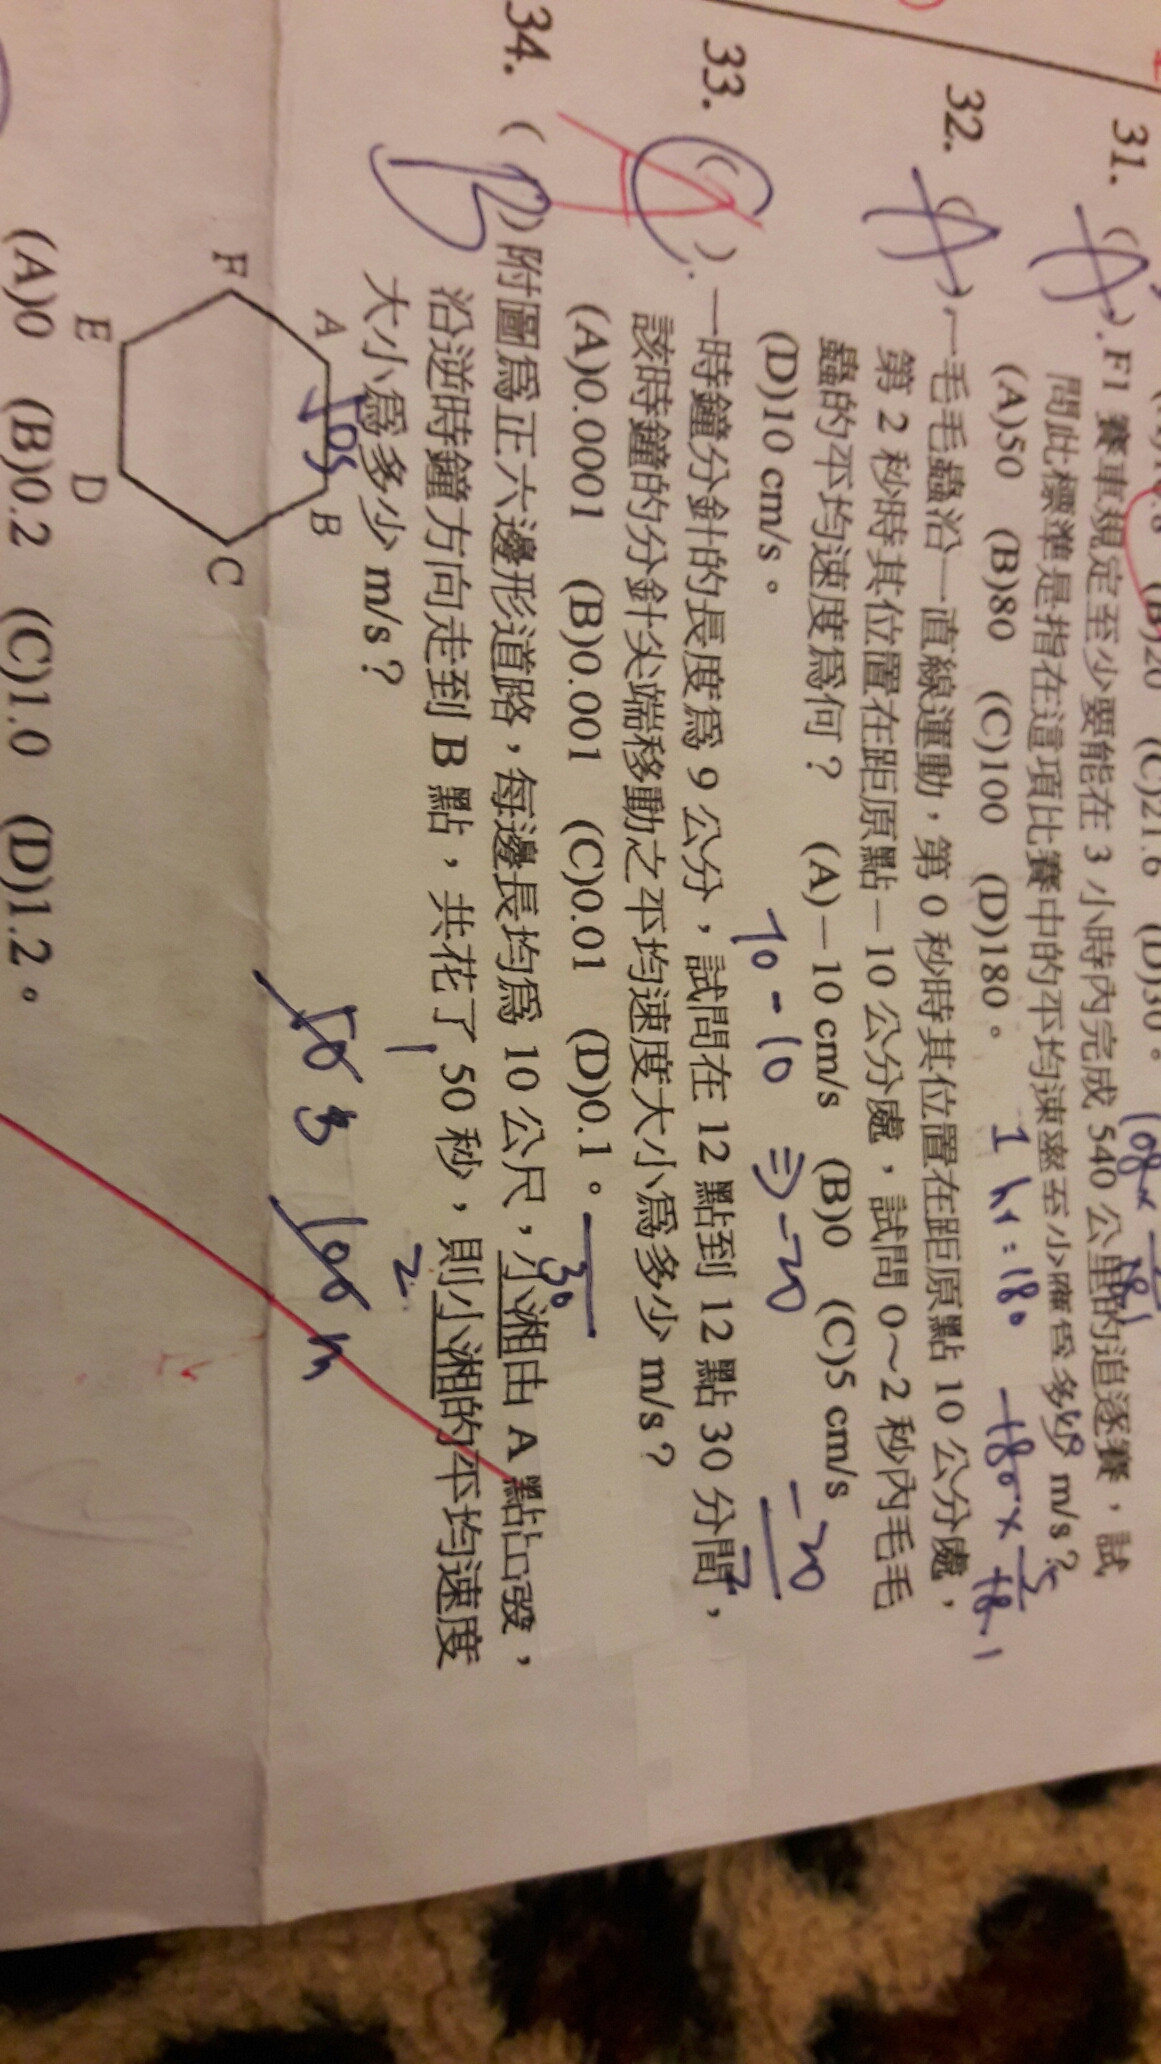 (B)20 (C)21.6 (D)30。
31. (A). F1 賽車規定至少要能在 3 小時內完成 540 公里的追逐賽，試
問此標準是指在這項比賽中的平均速率至少應為多少 m/s？
(A)50 (B)80 (C)100 (D)180。
1 hr = 180
180 × 5
18
32. (A) 一毛毛蟲沿一直線運動，第 0 秒時其位置在距原點 10 公分處，
第 2 秒時其位置在距原點－10 公分處，試問 0～2 秒內毛毛
蟲的平均速度為何？ (A)－10 cm/s (B)0 (C)5 cm/s
(D)10 cm/s。
10 - 10 ⇒ -20
-20
2
33. ( ) 一時鐘分針的長度為 9 公分，試問在 12 點到 12 點 30 分間，
該時鐘的分針尖端移動之平均速度大小為多少 m/s？
(A)0.0001 (B)0.001 (C)0.01 (D)0.1。
A
30
34. (B) 附圖為正六邊形道路，每邊長均為 10 公尺，小湘由 A 點出發，
沿逆時鐘方向走到 B 點，共花了 50 秒，則小湘的平均速度
大小為多少 m/s？
A
B
C
D
E
F
50 100 m
(A)0 (B)0.2 (C)1.0 (D)1.2。